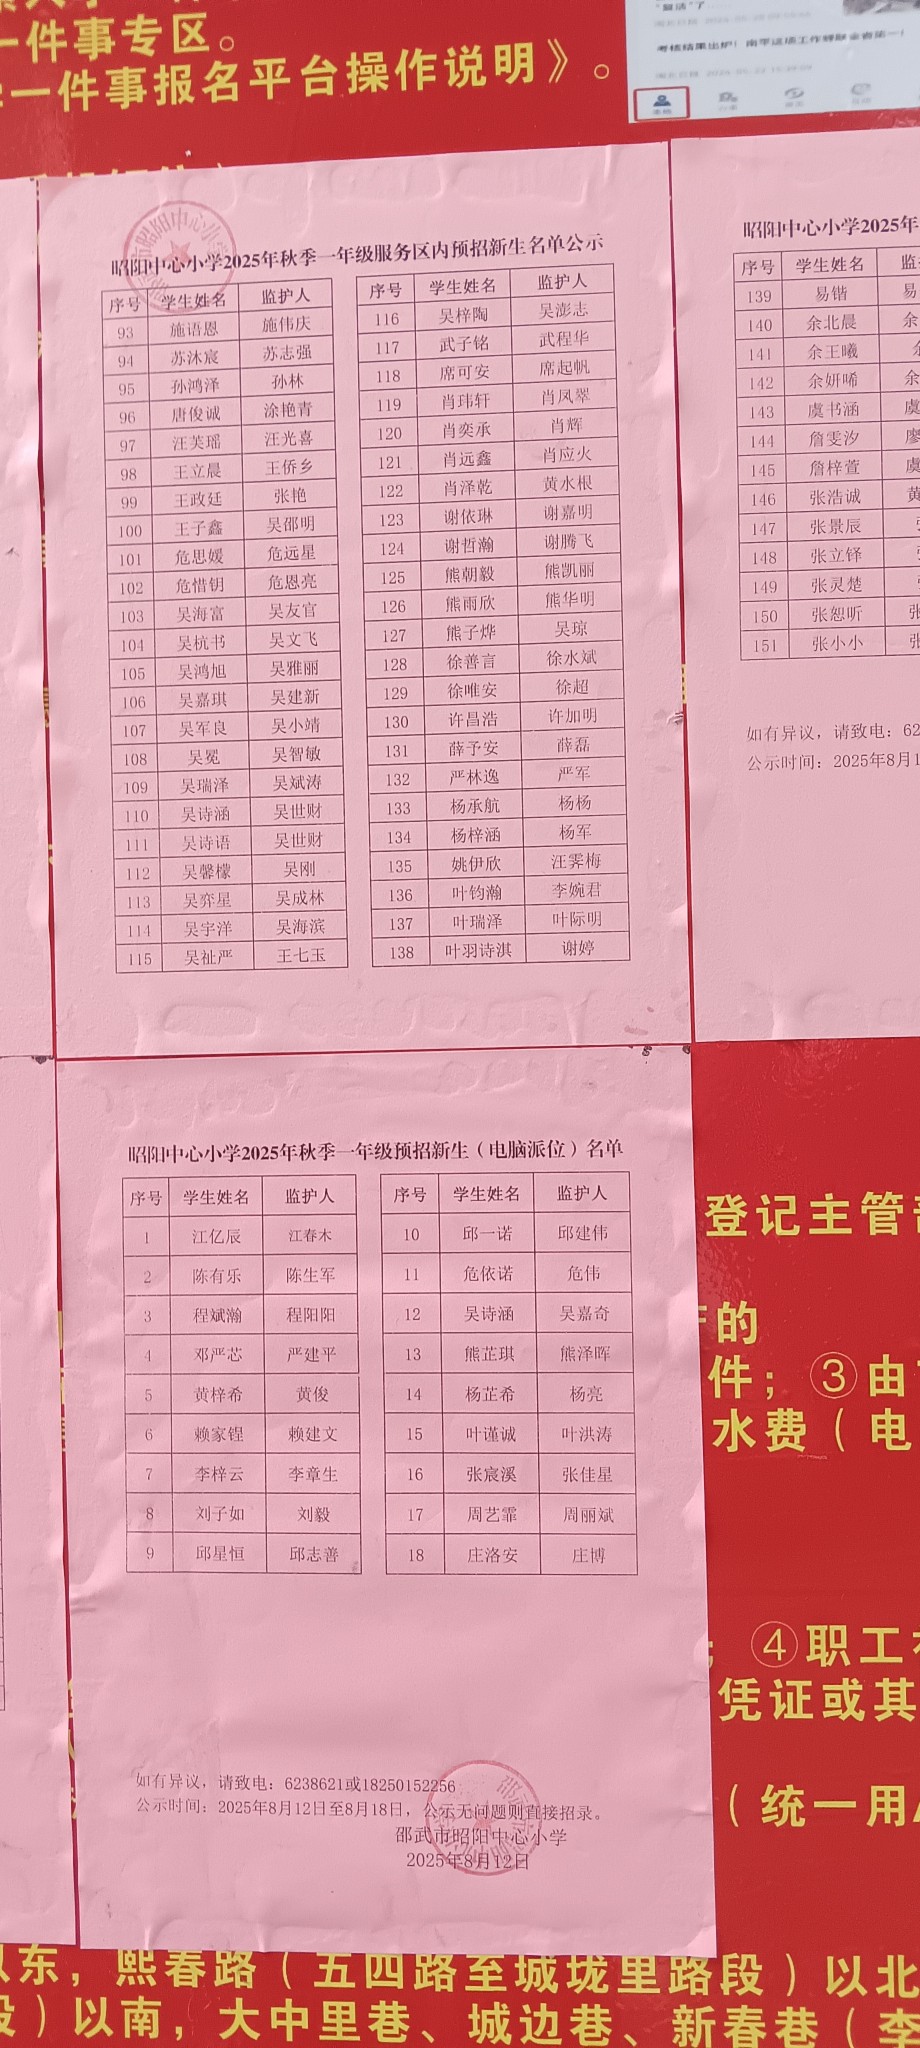 一件事专区。
一件事报名平台操作说明》。
昭阳中心小学2025年秋季一年级服务区内预招新生名单公示
序号 学生姓名 监护人
93 施语恩 施伟庆
94 苏沐宸 苏志强
95 孙鸿泽 孙林
96 唐俊诚 涂艳青
97 汪芙瑶 汪光喜
98 王立晨 王侨乡
99 王政廷 张艳
100 王子鑫 吴邵明
101 危思媛 危远星
102 危惜钥 危恩亮
103 吴海富 吴友官
104 吴杭书 吴文飞
105 吴鸿旭 吴雅丽
106 吴嘉琪 吴建新
107 吴军良 吴小靖
108 吴冕 吴智敏
109 吴瑞泽 吴斌涛
110 吴诗涵 吴世财
111 吴诗语 吴世财
112 吴馨檬 吴刚
113 吴弈星 吴成林
114 吴宇洋 吴海滨
115 吴祉严 王七玉
序号 学生姓名 监护人
116 吴梓陶 吴澎志
117 武子铭 武程华
118 席可安 席起帆
119 肖玮轩 肖凤翠
120 肖奕承 肖辉
121 肖远鑫 肖应火
122 肖泽乾 黄水根
123 谢依琳 谢嘉明
124 谢哲瀚 谢腾飞
125 熊朝毅 熊凯丽
126 熊雨欣 熊华明
127 熊子烨 吴琼
128 徐善言 徐水斌
129 徐唯安 徐超
130 许昌浩 许加明
131 薛予安 薛磊
132 严林逸 严军
133 杨承航 杨杨
134 杨梓涵 杨军
135 姚伊欣 汪霁梅
136 叶钧瀚 李婉君
137 叶瑞泽 叶际明
138 叶羽诗淇 谢婷
昭阳中心小学2025年
序号 学生姓名 监
139 易锴 易
140 余北晨 余
141 余王曦
142 余妍唏 余
143 虞书涵 虞
144 詹雯汐 廖
145 詹梓萱 虞
146 张浩诚 黄
147 张景辰
148 张立铎
149 张灵楚
150 张恕听 张
151 张小小 张
如有异议，请致电：62
公示时间：2025年8月1
昭阳中心小学2025年秋季一年级预招新生（电脑派位）名单
序号 学生姓名 监护人
1 江亿辰 江春木
2 陈有乐 陈生军
3 程斌瀚 程阳阳
4 邓严芯 严建平
5 黄梓希 黄俊
6 赖家锃 赖建文
7 李梓云 李章生
8 刘子如 刘毅
9 邱星恒 邱志善
序号 学生姓名 监护人
10 邱一诺 邱建伟
11 危依诺 危伟
12 吴诗涵 吴嘉奇
13 熊芷琪 熊泽晖
14 杨芷希 杨亮
15 叶谨诚 叶洪涛
16 张宸溪 张佳星
17 周艺霏 周丽斌
18 庄洛安 庄博
如有异议，请致电：6238621或18250152256
公示时间：2025年8月12日至8月18日，公示无问题则直接招录。
邵武市昭阳中心小学
2025年8月12日
登记主管
的
件；③由
水费（电
；④职工
凭证或其
（统一用
以东，熙春路（五四路至城垅里路段）以北
段）以南，大中里巷、城边巷、新春巷（李